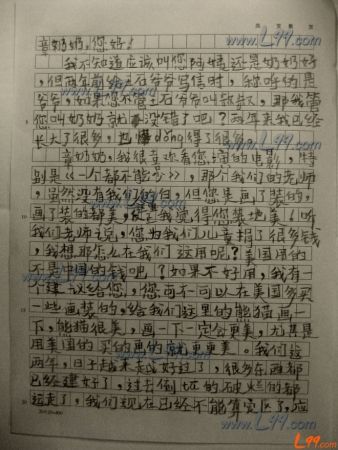 www.L99.com
章奶奶,您好!
我不知道应该叫您阿姨还是奶奶好
,但两年前给石爷爷写信时,称呼的是
爷爷,如果您不管石爷爷叫叔叔,那我管
您叫奶奶就没错了吧?两年来我已经
长大了很多,也懂dong得了很多。
章奶奶,我很喜欢看您演的电影,特
别是《一个都不能少》,那个我们的老师
,虽然没有我们的白,但您是画了装的,
画了装的都美,反正我觉得您第地美!听
我们老师说,您为我们儿童捐了很多钱
,我想那怎么在我们这用呢?美国用的
不是中国的钱吧!?如果不好用,我有一
个建议给您,您可不可以在美国多买
一些画装的,给我们这里的熊猫画一
下,熊猫很美,画一下一定会更美,尤其是
用美国的买的画的就更更美。我们这
两年,日子越来越好过了,很多东西都
已经建好了,过去倒坏的破烂的都
运走了,我们现在已经不能算灾区了,应
20×20=400
L99.com